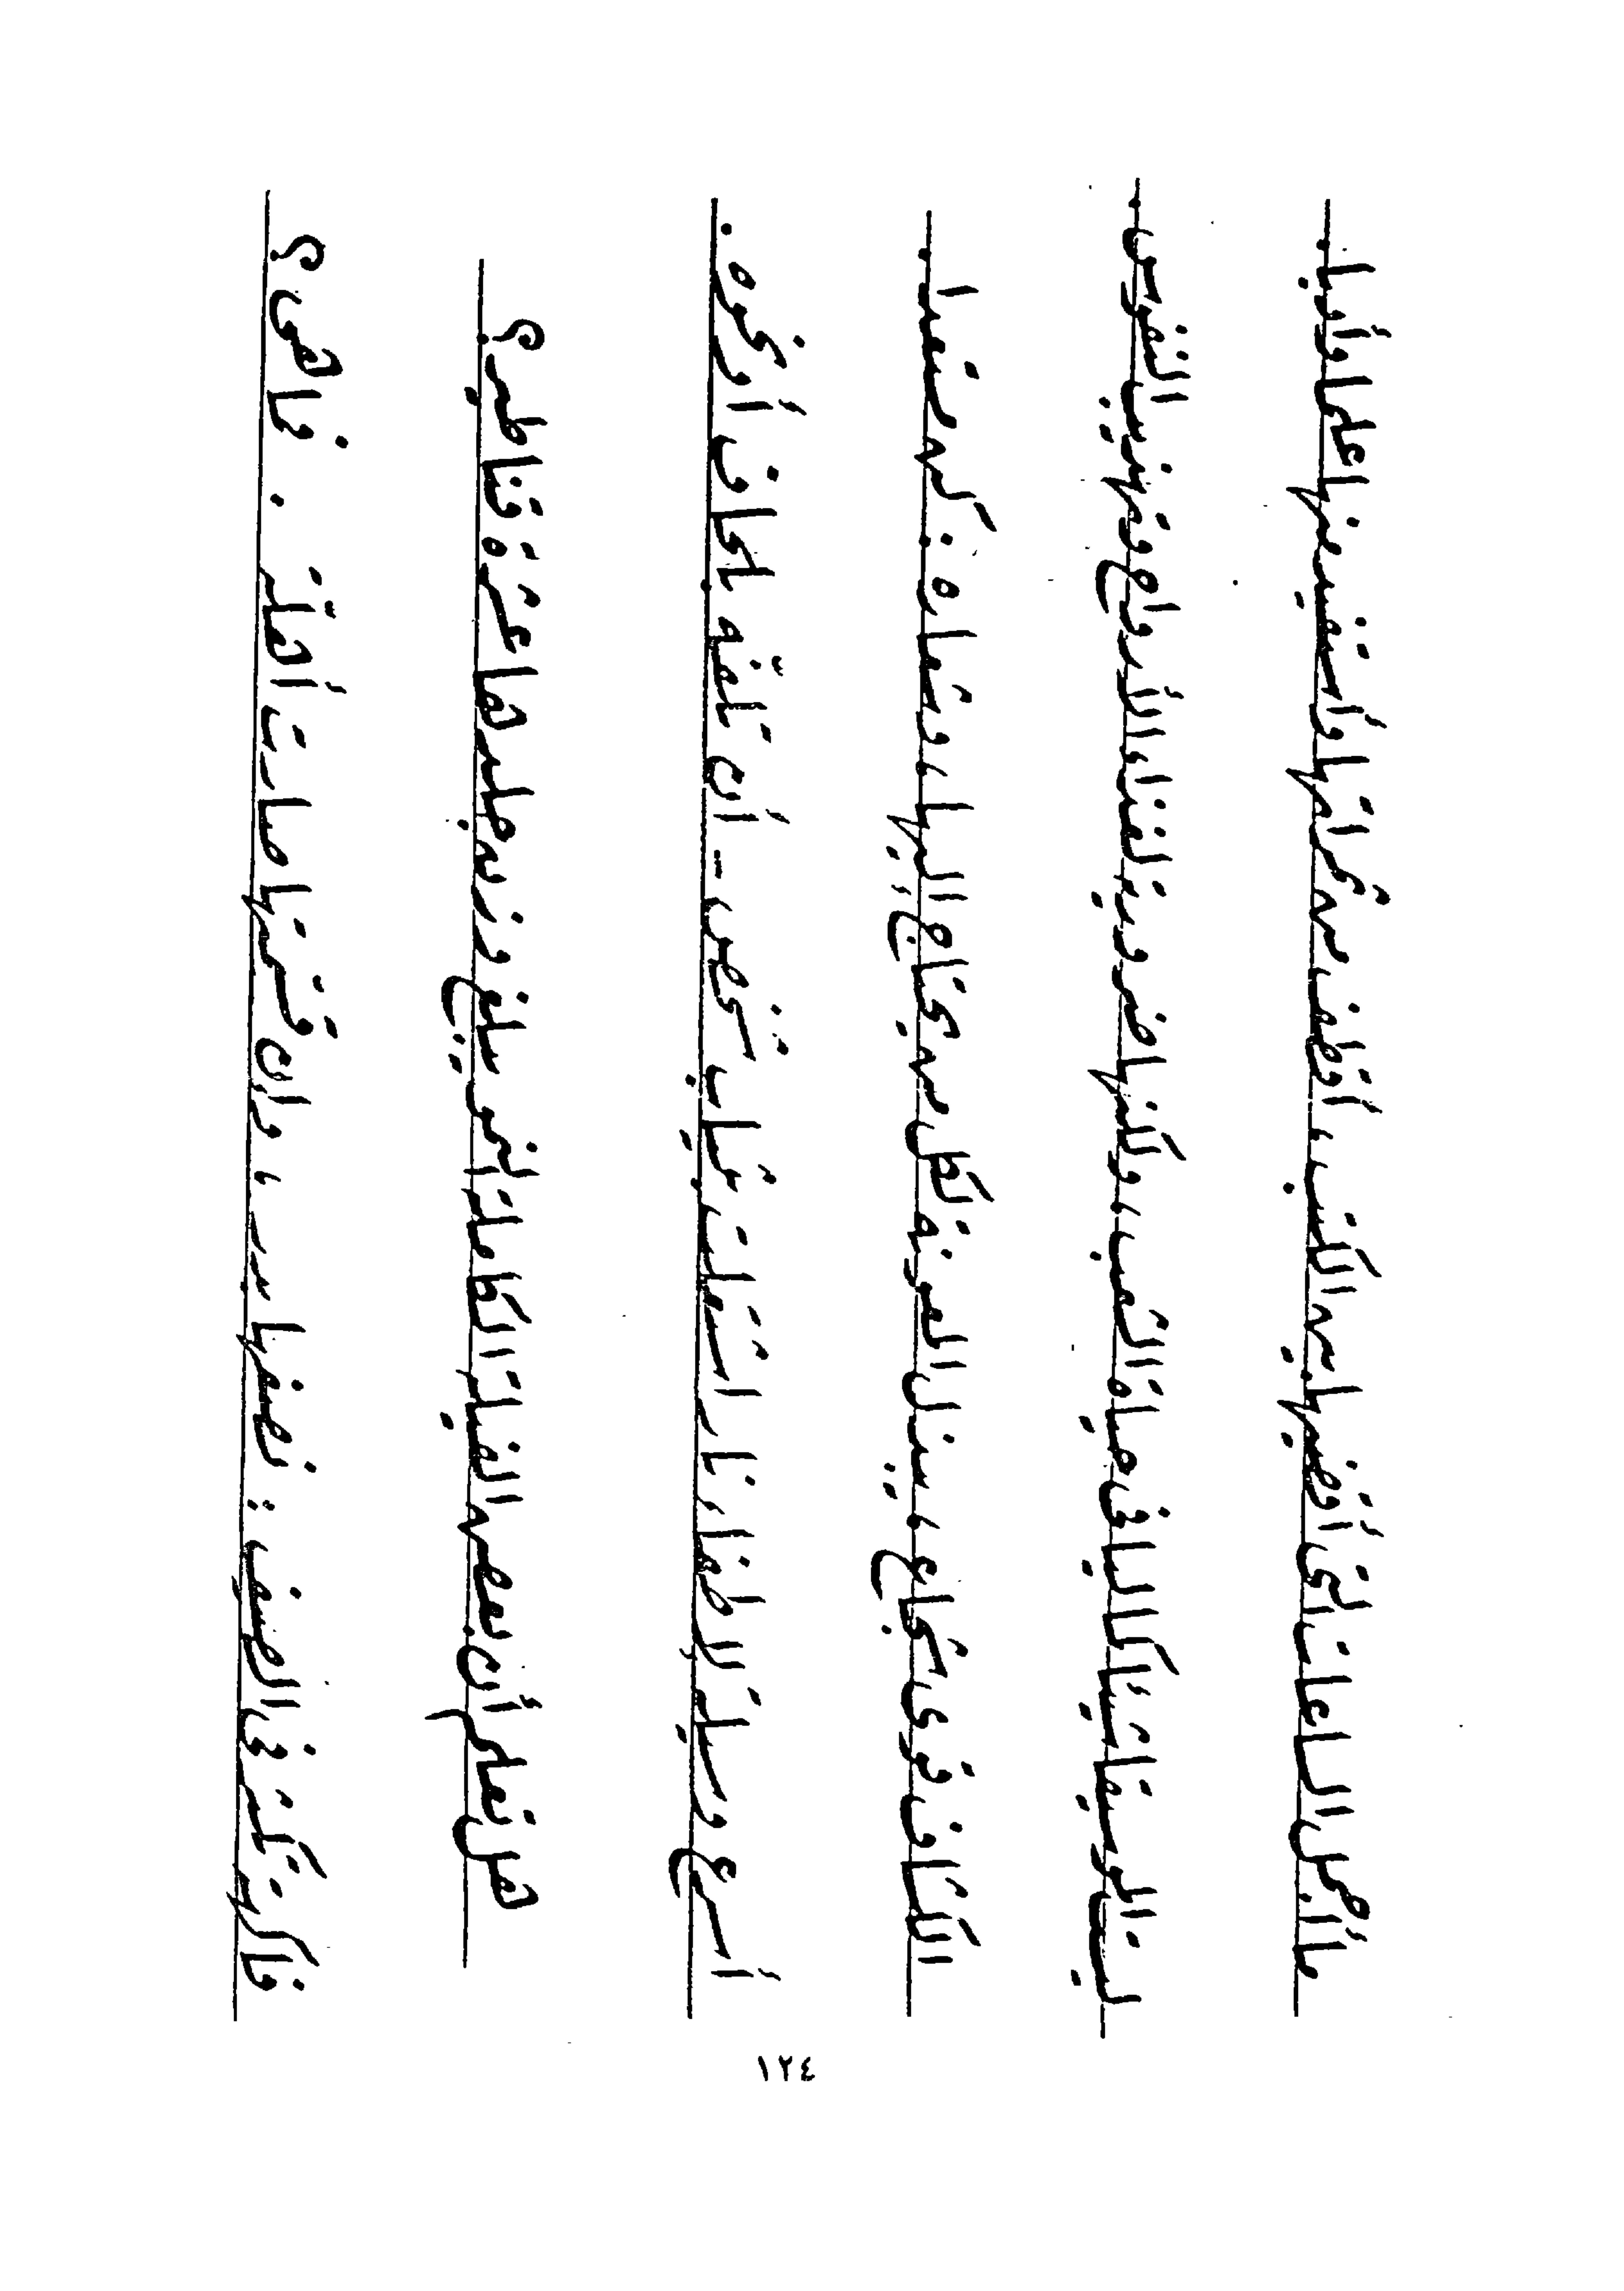 ما أجمل الساعات التى أقضيها بين الكتب ، أقطف من ثمراتها وأستفيد منها علما وأدبا .
ليت الموسيقا شيئا كماليا فى حياة الشعب ، ولكنها ضرورية لغذاء الأرواح وتهذيب النفوس .
الكشاف فوى شجاع ، يبذل المعونة لكل من يحتاج إليها ، وشعاره : كن مستعدا .
أسرع وسيلة لإطفاء نار اشتعلت بثياب شخص - أن تلفه بلحاف أو نحوه .
هل تعلم أن بعض الفيلة الكاملة النمو يبلغ وزن جلدها عشرة قناطير ؟
فاكهة تكثر فى الصيف : نصفها بدر ، وإن قسمتها صارت أهلة . فما هى ؟
١٢٤